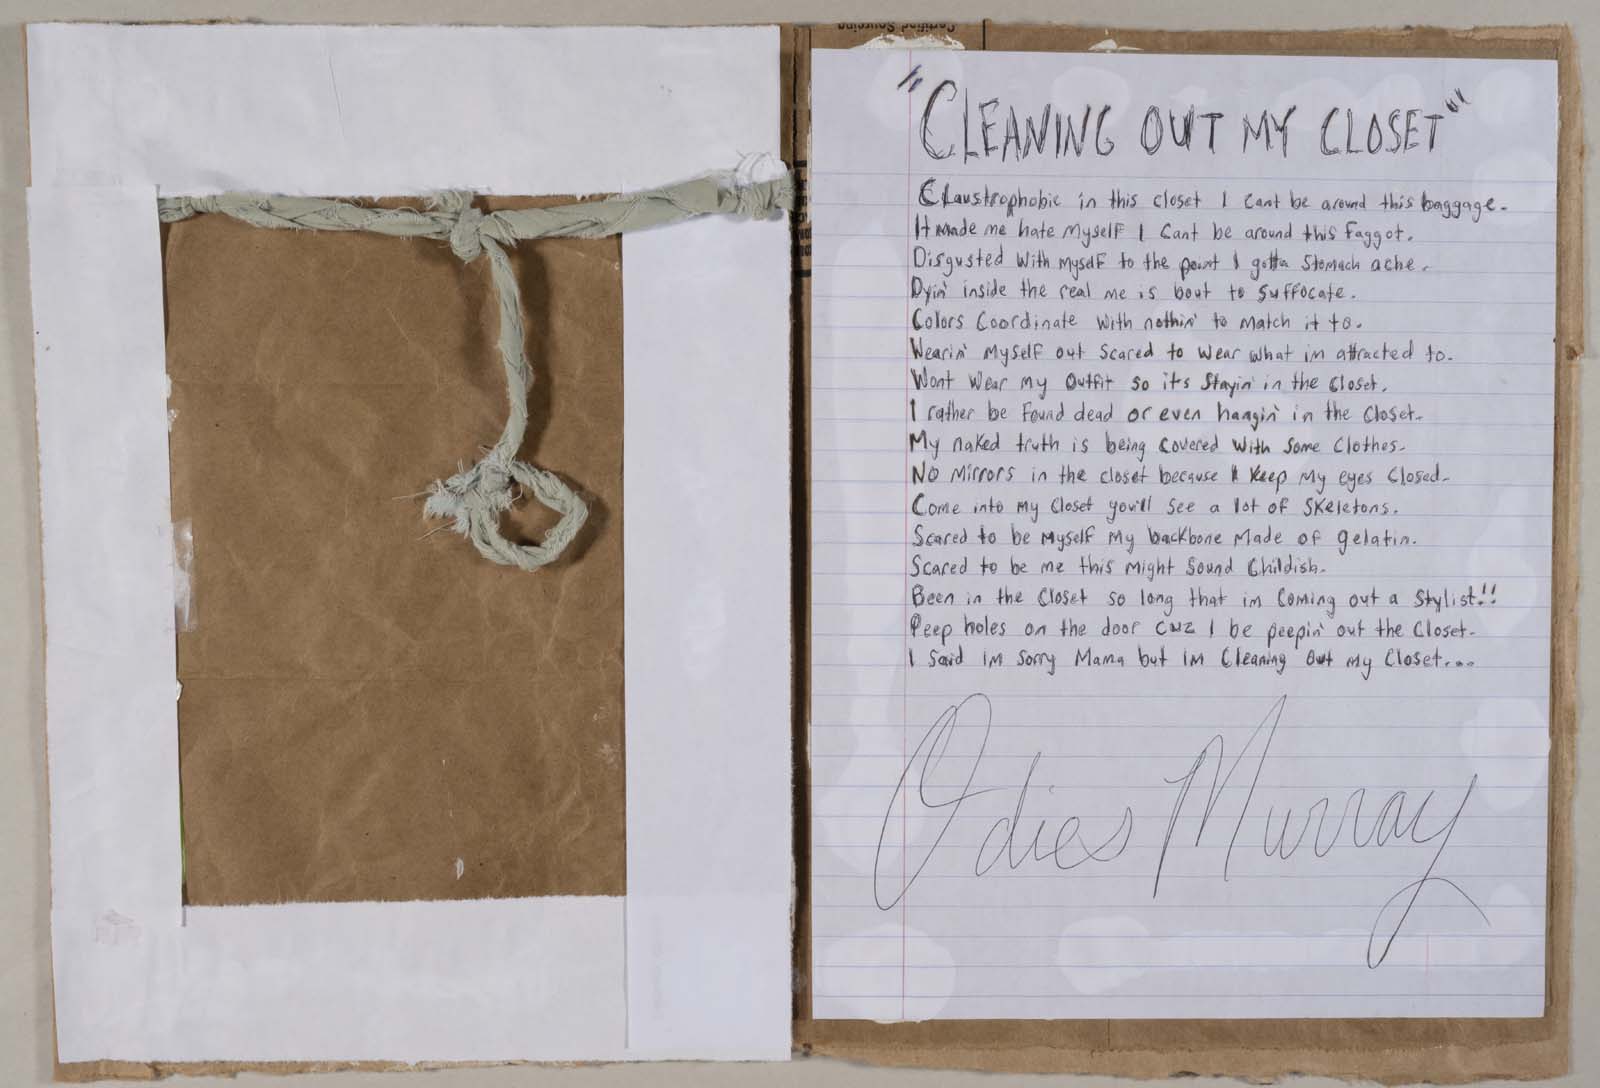 Certified Sourcing
"CLEANING OUT MY CLOSET"
Claustrophobic in this closet I cant be around this baggage.
It made me hate myself I cant be around this faggot.
Disgusted with myself to the point I gotta stomach ache.
Dyin' inside the real me is bout to suffocate.
Colors coordinate with nothin' to match it to.
Wearin' myself out scared to wear what im attracted to.
Wont wear my outfit so its stayin' in the closet.
I rather be found dead or even hangin' in the closet.
My naked truth is being covered with some clothes.
No mirrors in the closet because I keep my eyes closed.
Come into my closet you'll see a lot of skeletons.
Scared to be myself my backbone made of gelatin.
Scared to be me this might sound childish.
Been in the closet so long that im coming out a stylist!!
Peep holes on the door cuz I be peepin' out the closet.
I said im sorry Mama but im cleaning out my closet...
Odies Murray